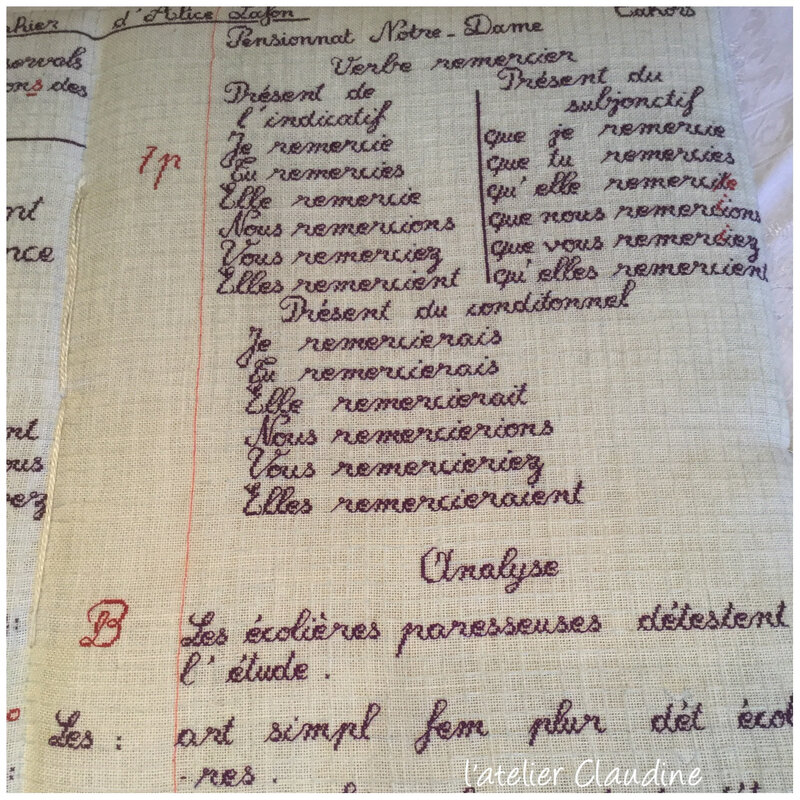 d'Alice Lafon
Cahors
Pensionnat Notre-Dame
Verbe remercier
Présent de
l'indicatif
Je remercie
Tu remercies
Elle remercie
Nous remercions
Vous remerciez
Elles remercient
Présent du
subjonctif
que je remercie
que tu remercies
qu'elle remercie
que nous remerciions
que vous remerciiez
qu'elles remercient
7p
Présent du conditonnel
Je remercierais
Tu remercierais
Elle remercierait
Nous remercierions
Vous remercieriez
Elles remercieraient
Analyse
B
Les écolières paresseuses détestent
l'étude.
Les : art simpl fem plur dét écol
-res.
l'atelier Claudine